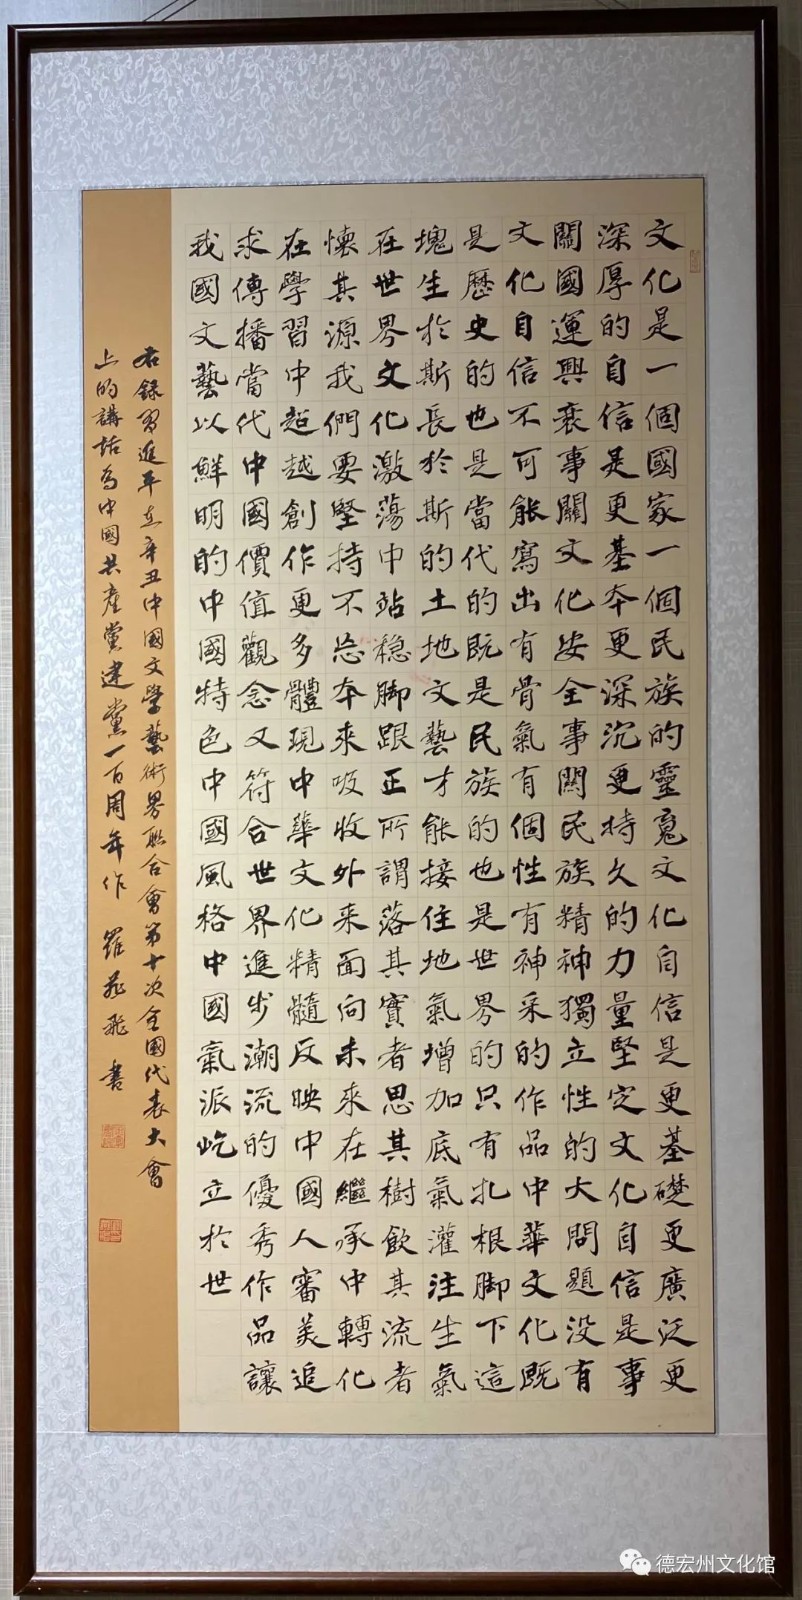 文化是一個國家一個民族的靈魂文化自信是更基礎更廣泛更
深厚的自信是更基本更深沉更持久的力量堅定文化自信是事
關國運興衰事關文化安全事關民族精神獨立性的大問題没有
文化自信不可能寫出有骨氣有個性有神采的作品中華文化既
是歷史的也是當代的既是民族的也是世界的只有扎根脚下這
塊生於斯長於斯的土地文藝才能接住地氣增加底氣灌注生氣
在世界文化激蕩中站稳脚跟正所謂落其實者思其樹飲其流者
懷其源我們要堅持不忘本來吸收外来面向未來在繼承中轉化
在學習中超越創作更多體現中華文化精髓反映中國人審美追
求傳播當代中國價值觀念又符合世界進步潮流的優秀作品讓
我國文藝以鮮明的中國特色中國風格中國氣派屹立於世
右錄習進平在辛丑中國文學藝術界聯合會第十次全國代表大會
上的講話為中國共產黨建黨一百周年作 羅飛書
德宏州文化馆